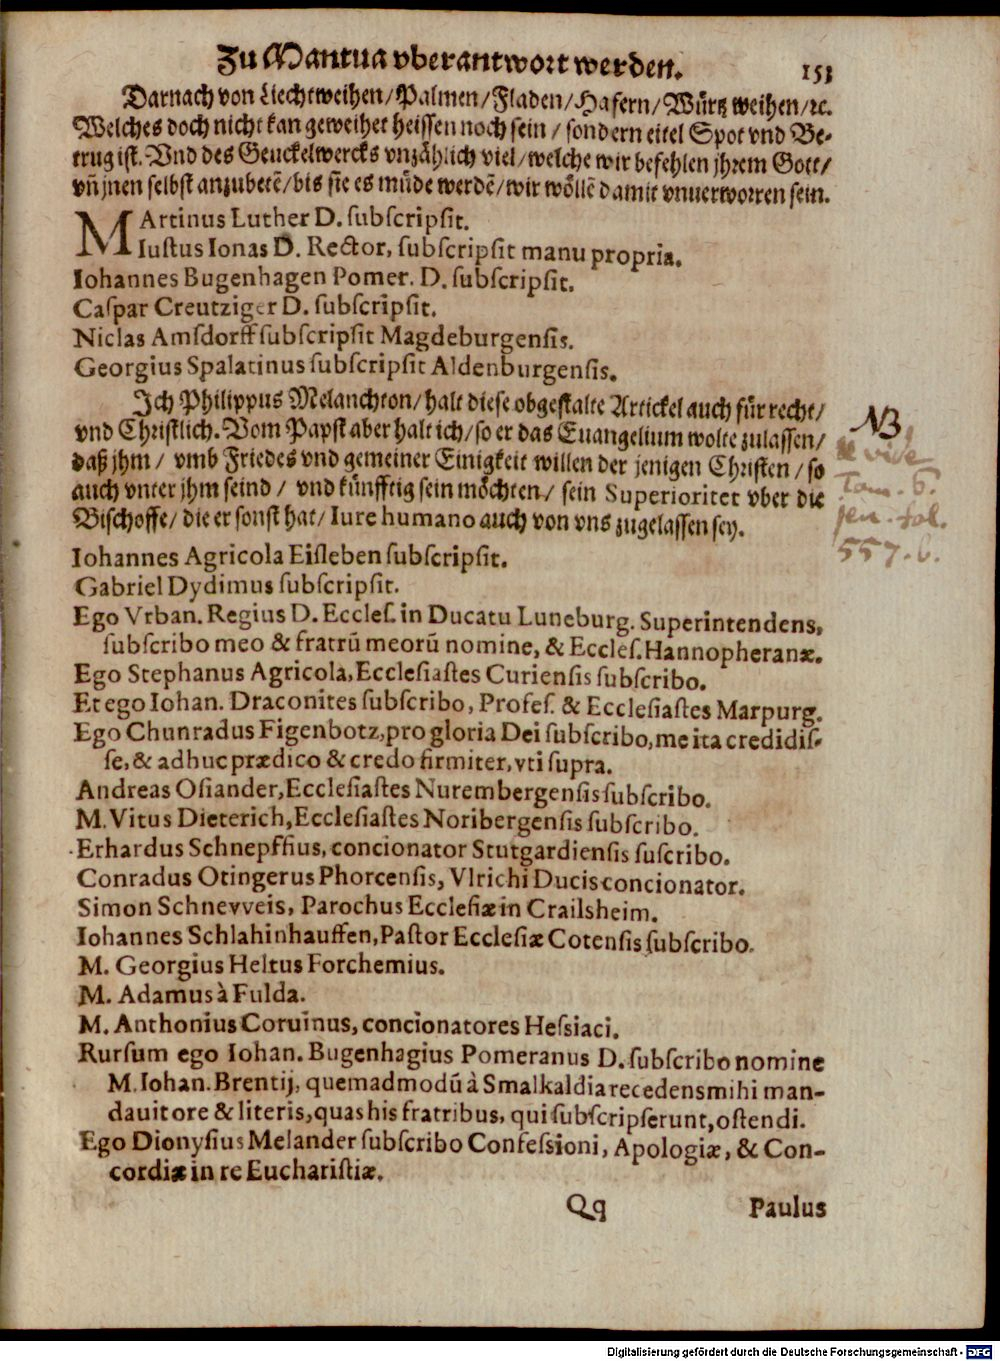 Zu Mantua vberantwort werden. 153
Darnach von Liechtweihen/Palmen/Fladen/Hafern/Würtz weihen/ꝛc.
Welches doch nicht kan geweihet heissen noch sein / sondern eitel Spot vnd Be-
trug ist. Vnd des Geuckelwercks vnzählich viel/welche wir befehlen jhrem Gott/
vñ jnen selbst anzubetẽ/bis sie es müde werdẽ/wir wöllẽ damit vnuerworren sein.
MArtinus Luther D. subscripsit.
Iustus Ionas D. Rector, subscripsit manu propria.
Iohannes Bugenhagen Pomer. D. subscripsit.
Caspar Creutziger D. subscripsit.
Niclas Amsdorff subscripsit Magdeburgensis.
Georgius Spalatinus subscripsit Aldenburgensis.
Ich Philippus Melanchton/halt diese obgestalte Artickel auch für recht/
vnd Christlich. Vom Papst aber halt ich/so er das Euangelium wolte zulassen/
daß jhm / vmb Friedes vnd gemeiner Einigkeit willen der jenigen Christen / so
auch vnter jhm seind / vnd künfftig sein möchten/ sein Superioritet vber die
Bischoffe/ die er sonst hat/ Iure humano auch von vns zugelassen sey.
NB
vide
Tom. 6.
jen. fol.
557. b.
Iohannes Agricola Eisleben subscripsit.
Gabriel Dydimus subscripsit.
Ego Vrban. Regius D. Eccles. in Ducatu Luneburg. Superintendens,
subscribo meo & fratrũ meorũ nomine, & Eccles. Hannopheranæ.
Ego Stephanus Agricola, Ecclesiastes Curiensis subscribo.
Et ego Iohan. Draconites subscribo, Profes. & Ecclesiastes Marpurg.
Ego Chunradus Figenbotz, pro gloria Dei subscribo, me ita credidis-
se, & adhuc prædico & credo firmiter, vti supra.
Andreas Osiander, Ecclesiastes Nurembergensis subscribo.
M. Vitus Dieterich, Ecclesiastes Noribergensis subscribo.
Erhardus Schnepffius, concionator Stutgardiensis suscribo.
Conradus Otingerus Phorcensis, Vlrichi Ducis concionator.
Simon Schnevveis, Parochus Ecclesiæ in Crailsheim.
Iohannes Schlahinhauffen, Pastor Ecclesiæ Cotensis subscribo.
M. Georgius Heltus Forchemius.
M. Adamus à Fulda.
M. Anthonius Coruinus, concionatores Hessiaci.
Rursum ego Iohan. Bugenhagius Pomeranus D. subscribo nomine
M. Iohan. Brentij, quemadmodũ à Smalkaldia recedens mihi man-
dauit ore & literis, quas his fratribus, qui subscripserunt, ostendi.
Ego Dionysius Melander subscribo Confessioni, Apologiæ, & Con-
cordiæ in re Eucharistiæ.
Qq Paulus
Digitalisierung gefördert durch die Deutsche Forschungsgemeinschaft - DFG